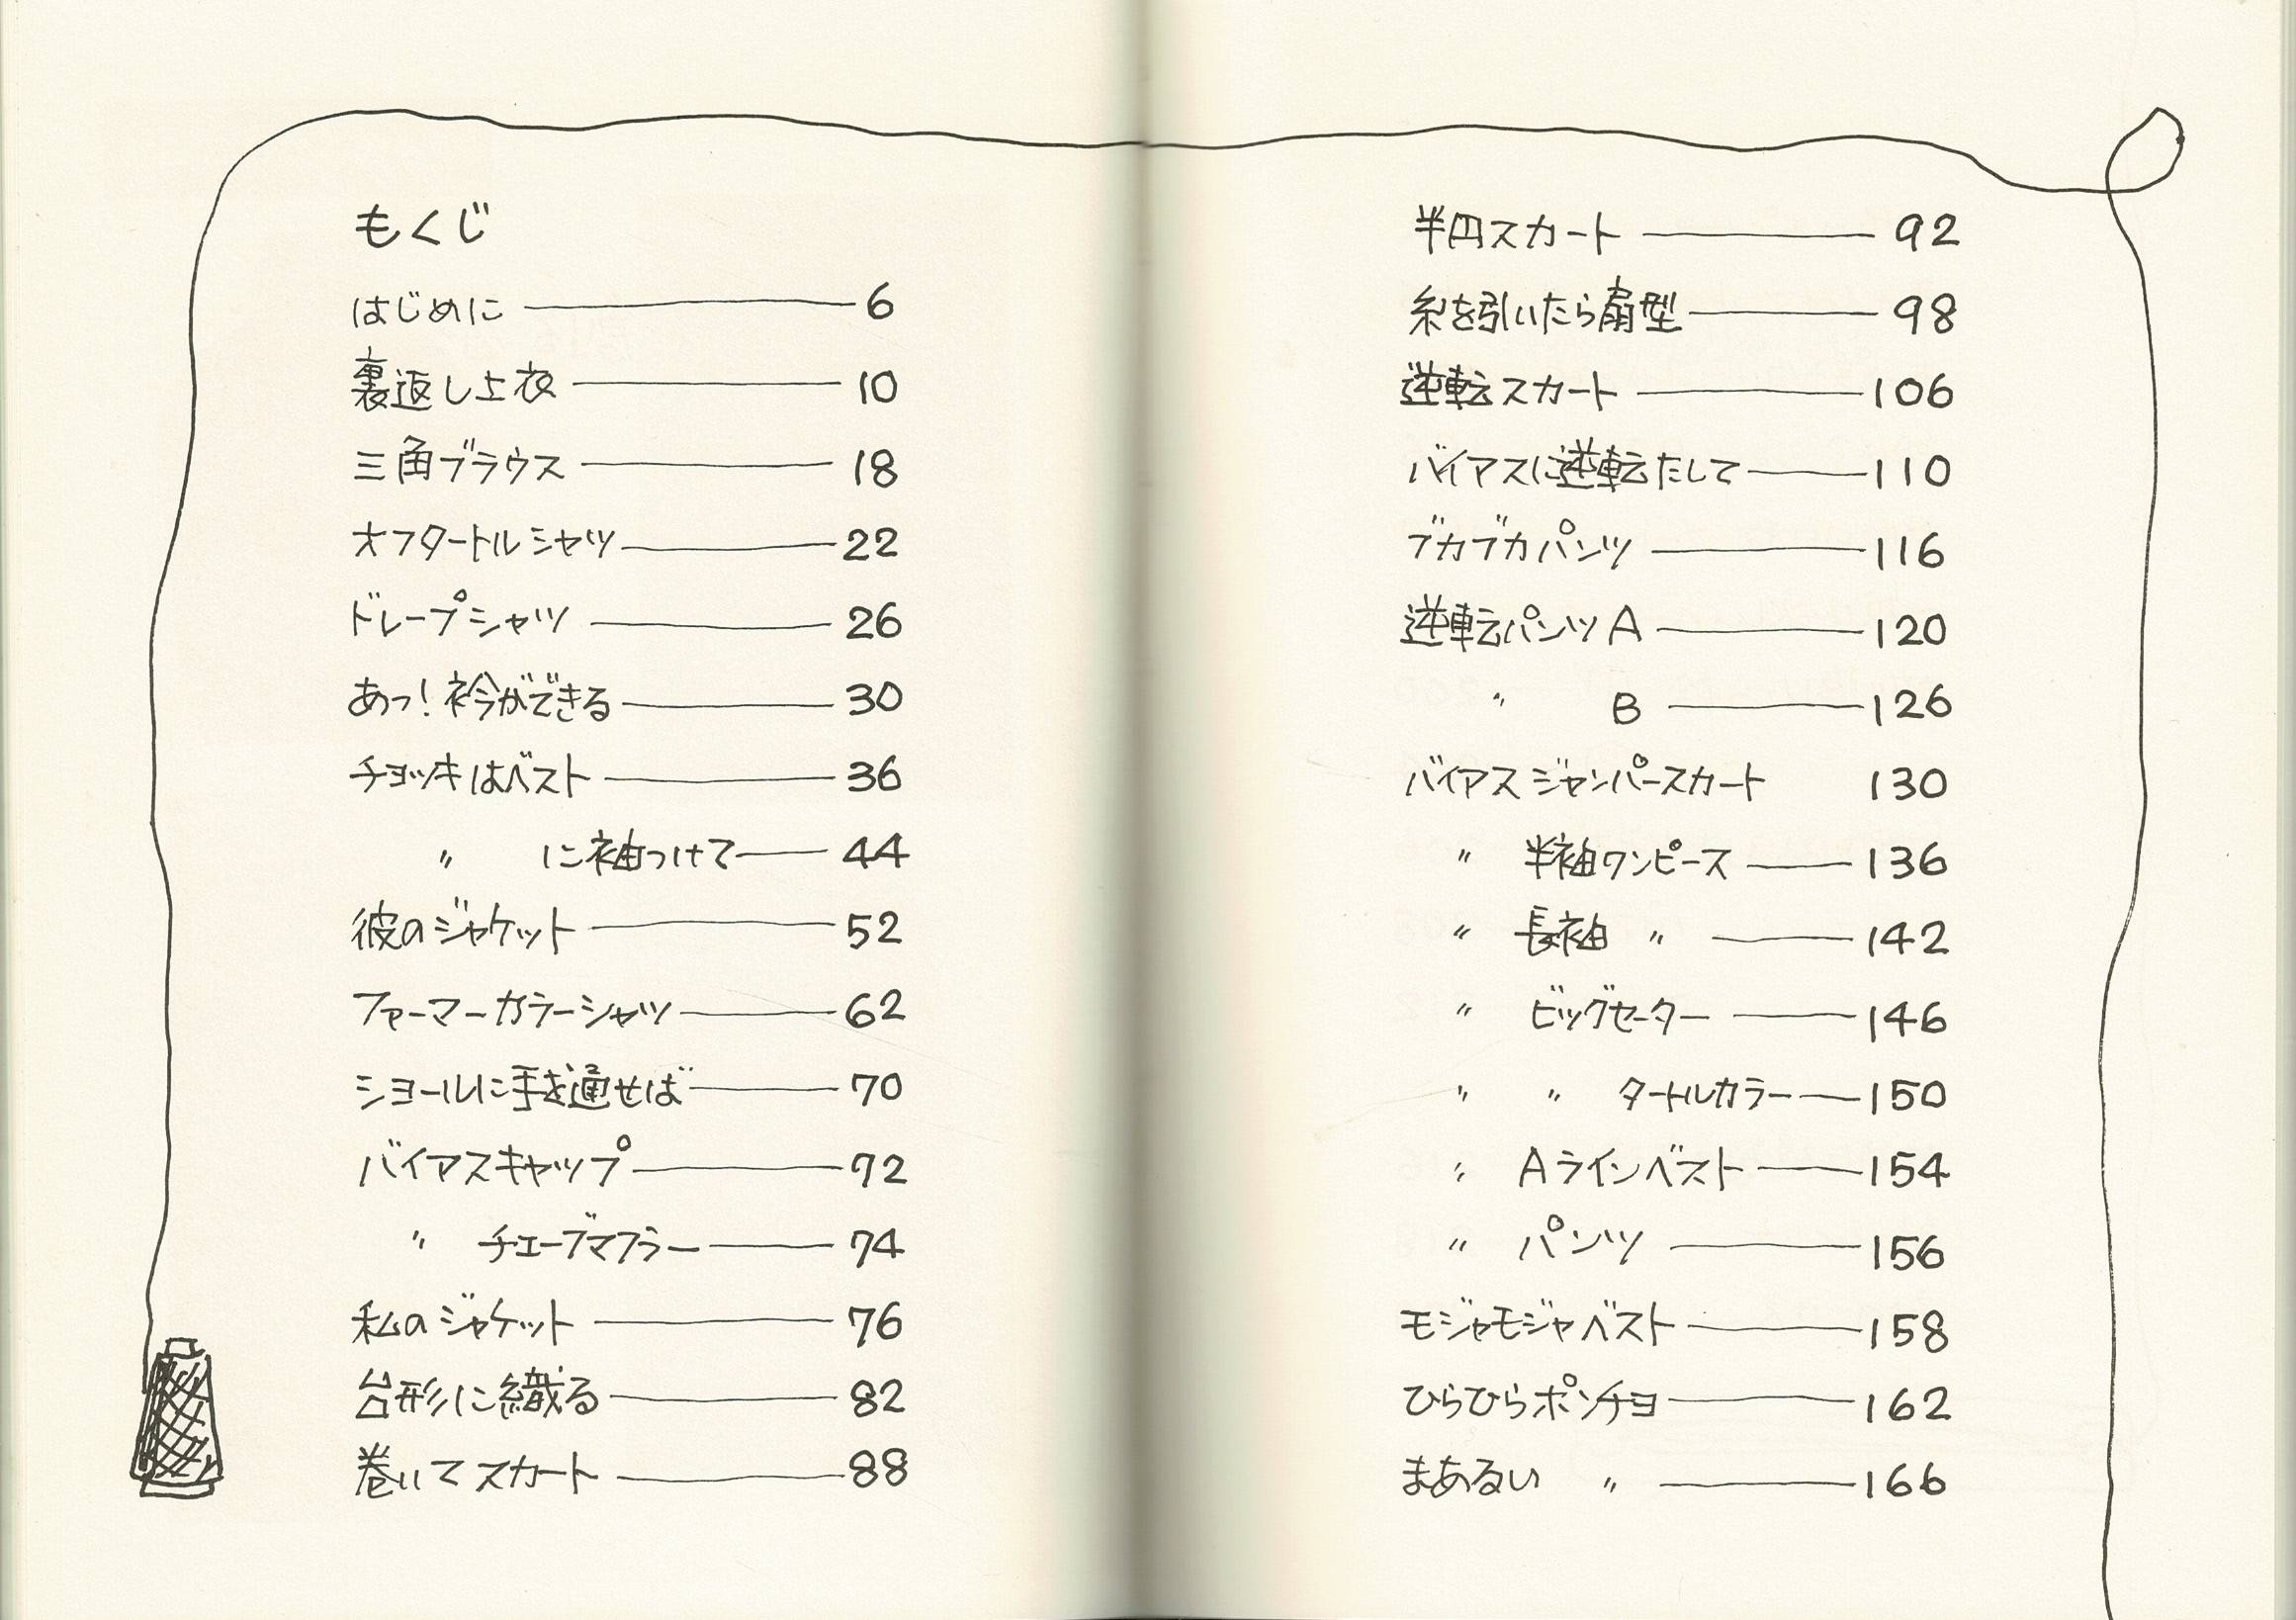 もくじ
はじめに ― 6
裏返し上衣 ― 10
三角ブラウス ― 18
オフタートルシャツ ― 22
ドレープシャツ ― 26
あっ!衿ができる ― 30
チョッキはベスト ― 36
〃 に袖つけて ― 44
彼のジャケット ― 52
ファーマーカラーシャツ ― 62
ショールに手を通せば ― 70
バイアスキャップ ― 72
〃 チューブマフラー ― 74
私のジャケット ― 76
台形に織る ― 82
巻いてスカート ― 88
半円スカート ― 92
糸を引いたら扇型 ― 98
逆転スカート ― 106
バイアスに逆転たして ― 110
ブカブカパンツ ― 116
逆転パンツA ― 120
〃 B ― 126
バイアスジャンパースカート 130
〃 半袖ワンピース ― 136
〃 長袖 〃 ― 142
〃 ビッグセーター ― 146
〃 〃 タートルカラー ― 150
〃 Aラインベスト ― 154
〃 パンツ ― 156
モジャモジャベスト ― 158
ひらひらポンチョ ― 162
まあるい 〃 ― 166